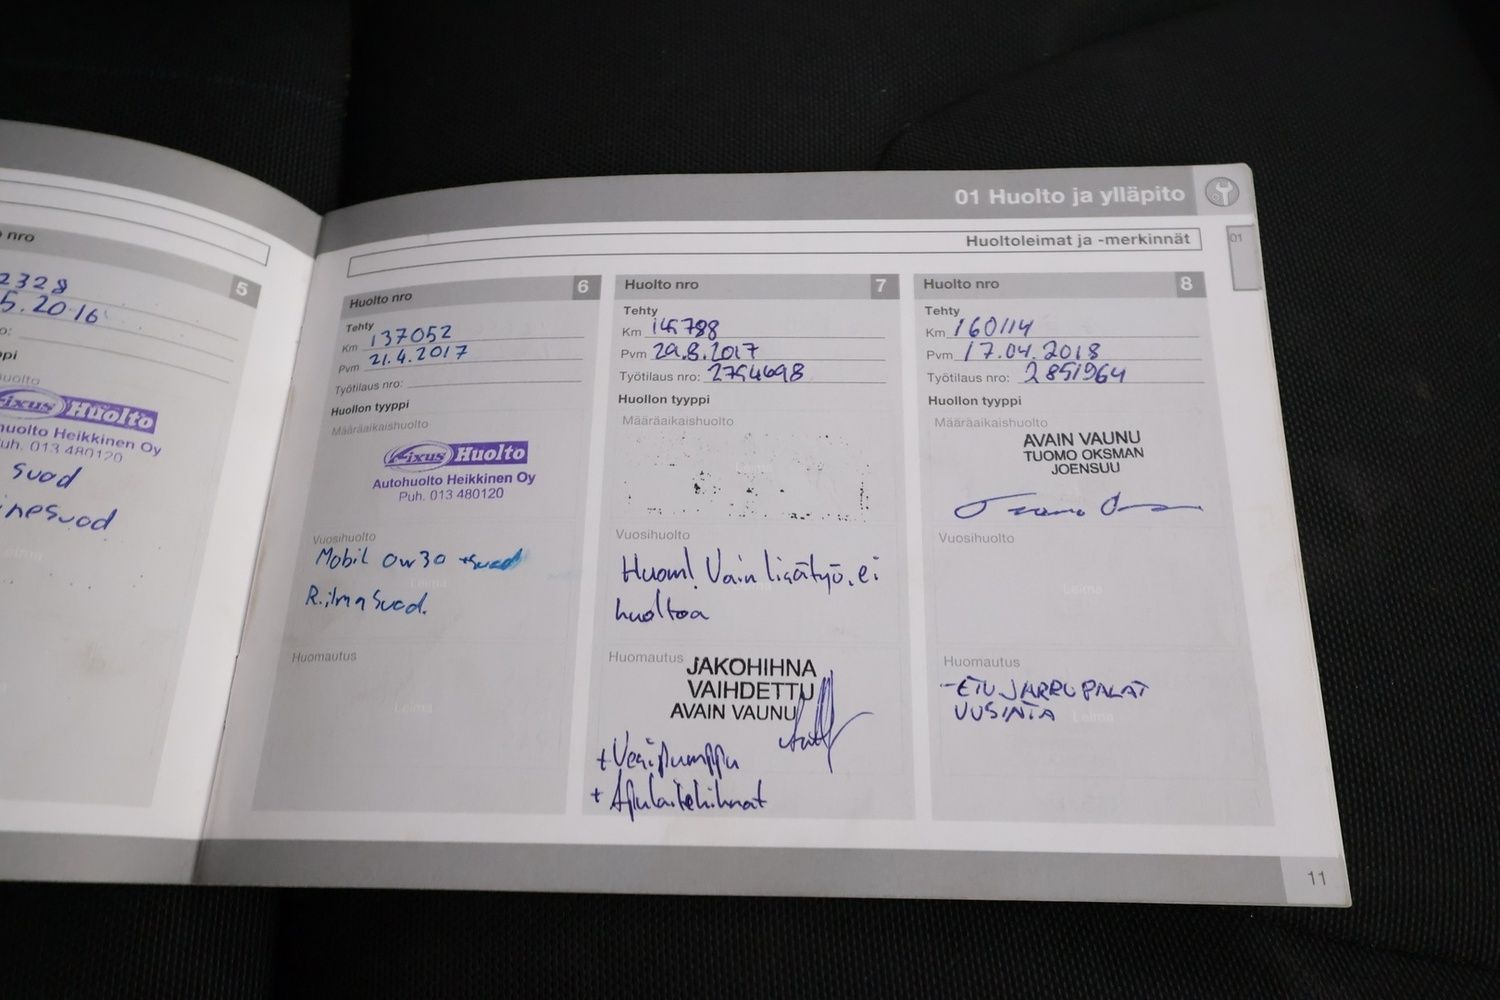 01 Huolto ja ylläpito
Huoltoleimat ja -merkinnät
01
nro
5
2328
5.2016
Fixus Huolto
huolto Heikkinen Oy
uh. 013 480120
suod
Huolto nro
6
Tehty
Km 137052
Pvm 21.4.2017
Työtilaus nro:
Huollon tyyppi
Määräaikaishuolto
Fixus Huolto
Autohuolto Heikkinen Oy
Puh. 013 480120
Vuosihuolto
Mobil 0w30 +suod
Leima
R.ilmasuod.
Huomautus
Leima
Huolto nro
7
Tehty
Km 145788
Pvm 29.8.2017
Työtilaus nro: 2754698
Huollon tyyppi
Määräaikaishuolto
Leima
Vuosihuolto
Huom! Vain lisätyö, ei
huoltoa
Huomautus
JAKOHIHNA
VAIHDETTU
AVAIN VAUNU
+ Vesipumppu
+ Apulaitehihnat
Huolto nro
8
Tehty
Km 160114
Pvm 17.04.2018
Työtilaus nro: 2851964
Huollon tyyppi
Määräaikaishuolto
AVAIN VAUNU
TUOMO OKSMAN
JOENSUU
Vuosihuolto
Leima
Huomautus
-ETUJARRUPALAT
UUSINTA
Leima
11